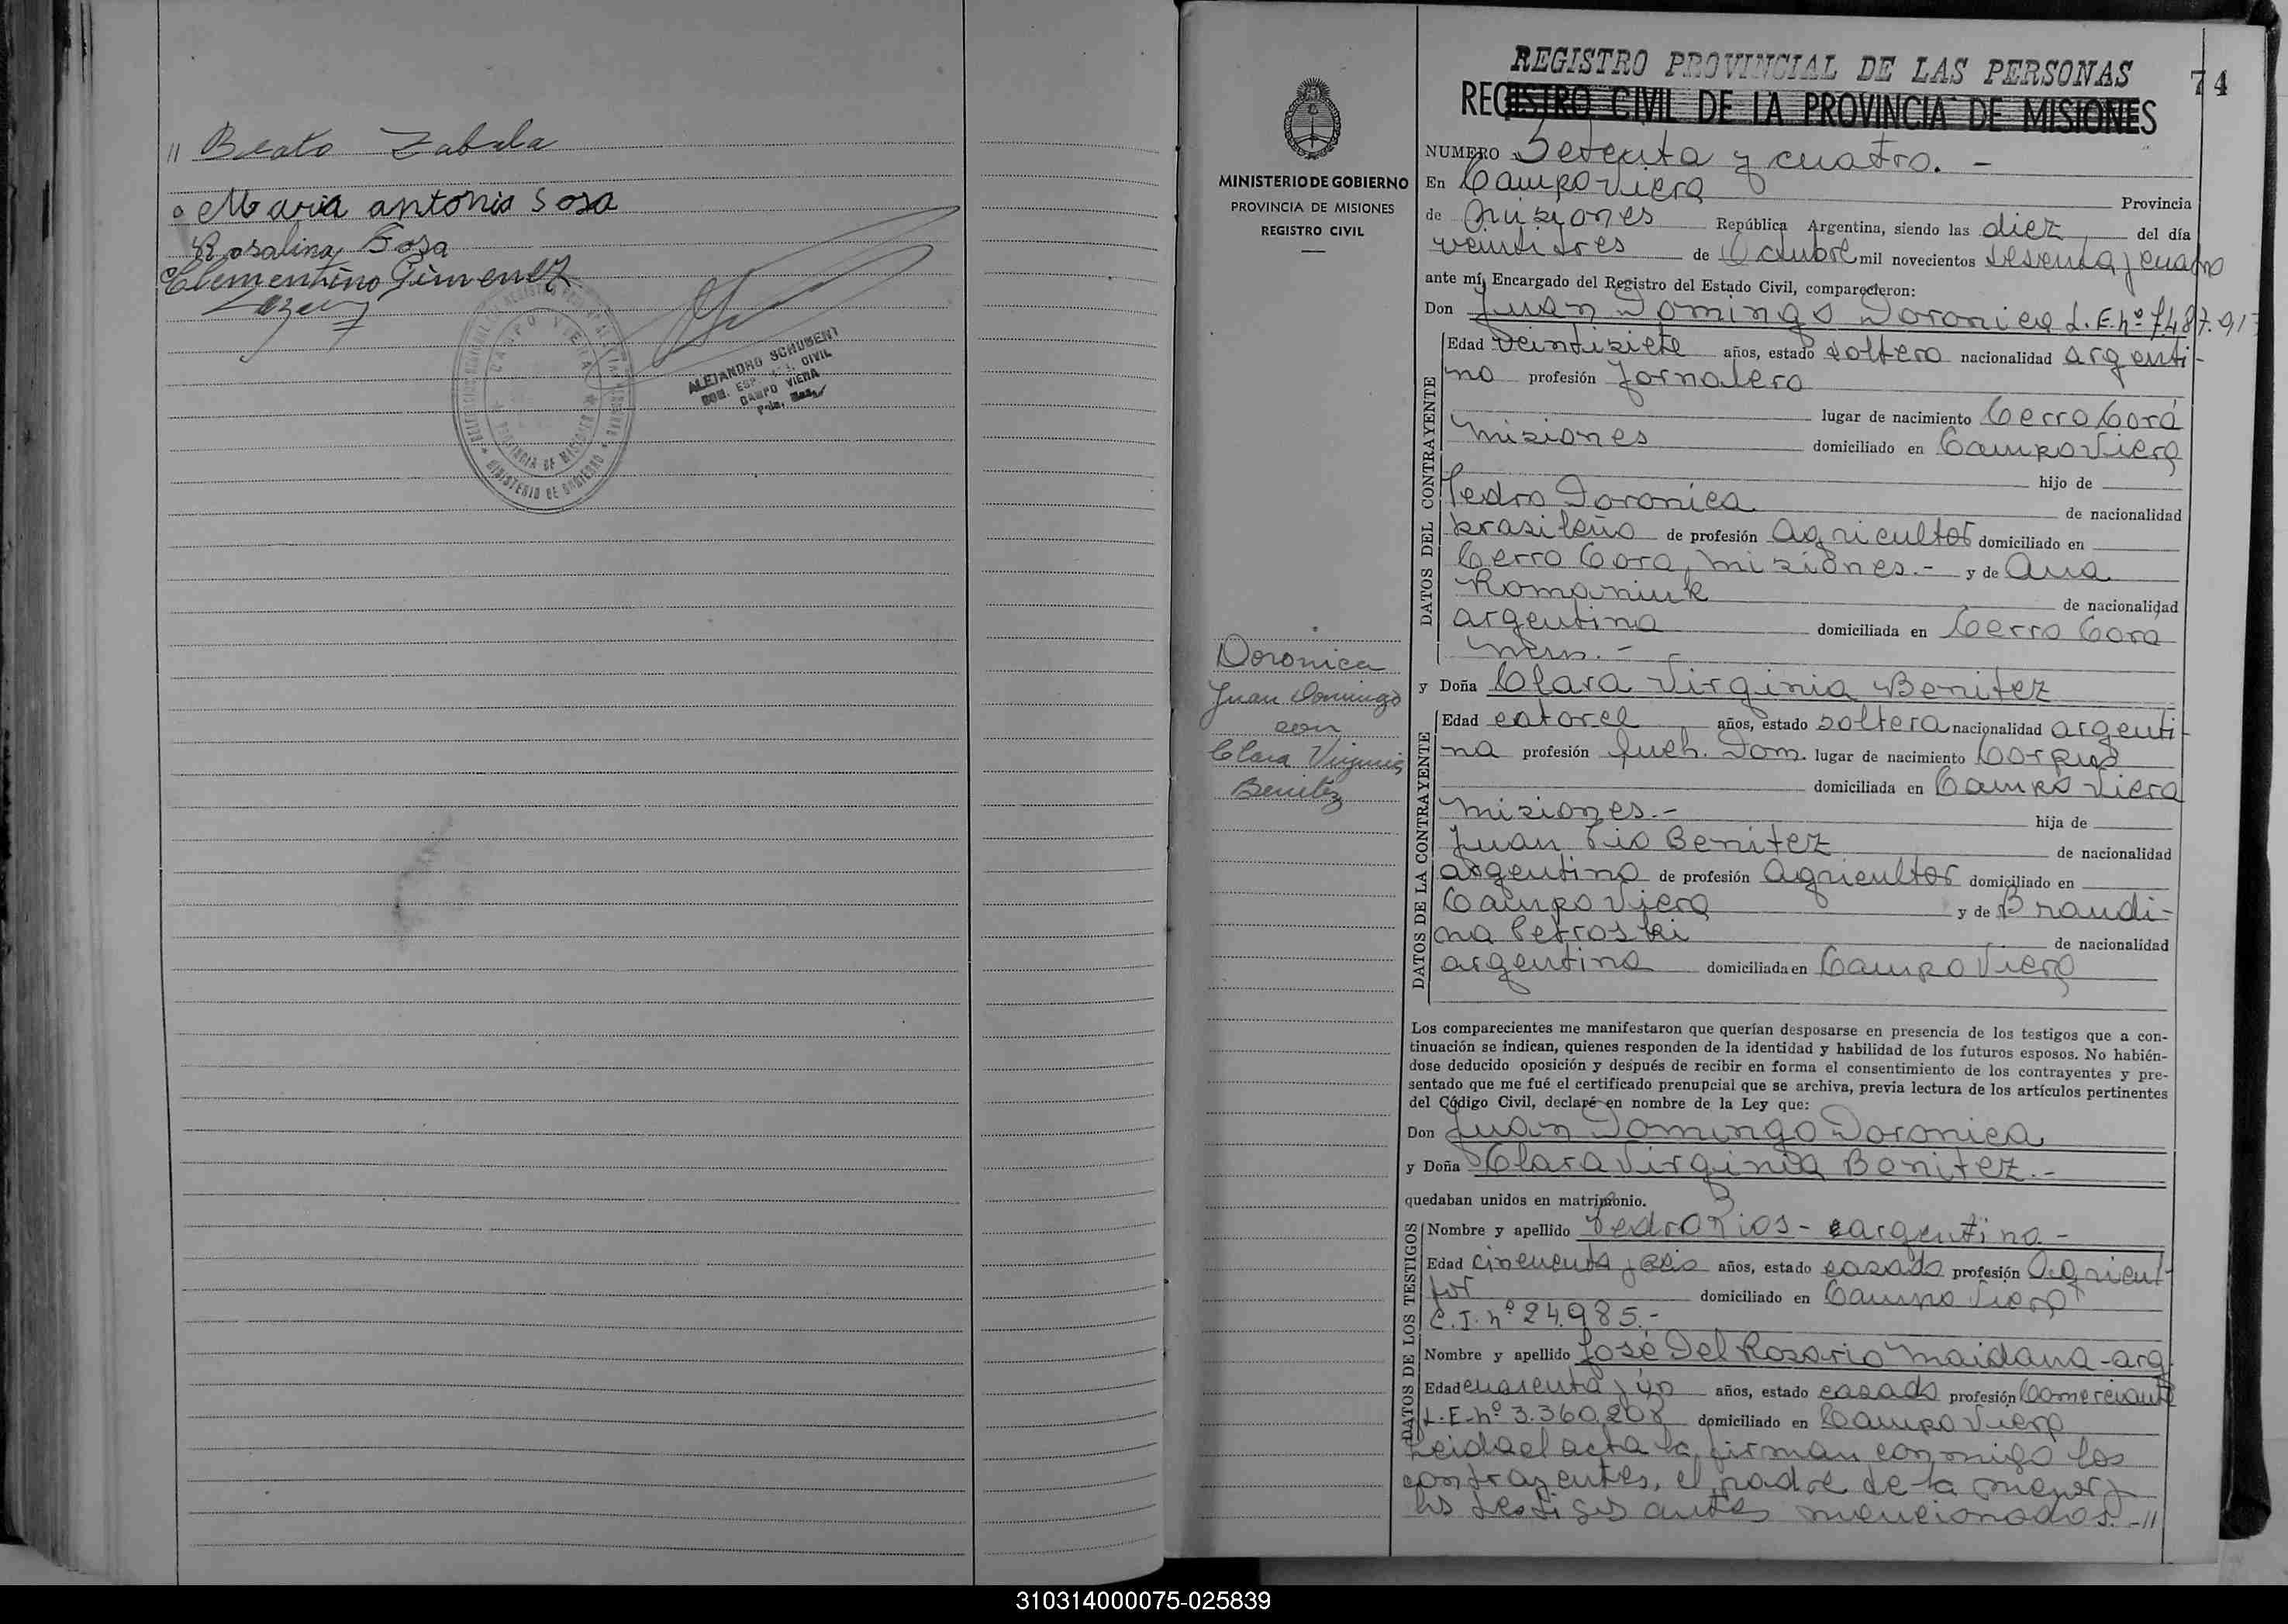 // Beato Zabala
Maria antonia Sosa
Rosalina Sosa
Clementino Gimenez
CAMPO VIERA
PROVINCIA DE MISIONES
MINISTERIO DE GOBIERNO
ALEJANDRO SCHUBERT
CIVIL
CAMPO VIERA
74
REGISTRO PROVINCIAL DE LAS PERSONAS
REGISTRO CIVIL DE LA PROVINCIA DE MISIONES
MINISTERIO DE GOBIERNO
PROVINCIA DE MISIONES
REGISTRO CIVIL
NUMERO Setenta y cuatro. -
En Campo Viera Provincia
de Misiones República Argentina, siendo las diez del día
veintitres de Octubre mil novecientos sesenta y cuatro
ante mí, Encargado del Registro del Estado Civil, comparecieron:
Don Juan Domingo Doronica L.E. nº 7.487.91
DATOS DEL CONTRAYENTE
Edad Veintisiete años, estado soltero nacionalidad argenti-
no profesión Jornalero
lugar de nacimiento Cerro Corá
Misiones domiciliado en Campo Viera
hijo de
Pedro Doronica de nacionalidad
brasileño de profesión Agricultor domiciliado en
Cerro Cora, Misiones.- y de Ana
Romaniuk de nacionalidad
argentina domiciliada en Cerro Cora
Mnes. -
Doronica
Juan Domingo
con
Clara Virginia
Benitez
y Doña Clara Virginia Benitez
DATOS DE LA CONTRAYENTE
Edad catorce años, estado soltera nacionalidad argenti-
na profesión Queh. Dom. lugar de nacimiento Corpus
domiciliada en Campo Viera
Misiones.- hija de
Juan Pio Benitez de nacionalidad
argentino de profesión Agricultor domiciliado en
Campo Viera y de Brandi-
na Petroski de nacionalidad
argentina domiciliada en Campo Viera
Los comparecientes me manifestaron que querían desposarse en presencia de los testigos que a con-
tinuación se indican, quienes responden de la identidad y habilidad de los futuros esposos. No habién-
dose deducido oposición y después de recibir en forma el consentimiento de los contrayentes y pre-
sentado que me fué el certificado prenupcial que se archiva, previa lectura de los artículos pertinentes
del Código Civil, declaré en nombre de la Ley que:
Don Juan Domingo Doronica
y Doña Clara Virginia Benitez.-
quedaban unidos en matrimonio.
DATOS DE LOS TESTIGOS
Nombre y apellido Pedro Rios - argentino -
Edad cincuenta y seis años, estado casado profesión Agricul-
tor domiciliado en Campo Viera
C.I. nº 24.985.-
Nombre y apellido José Del Rosario Maidana - arg.
Edad cuarenta y un años, estado casado profesión Comerciante
L.E. nº 3.360.208 domiciliado en Campo Viera
Leida el acta la firman conmigo los
contrayentes, el padre de la menor y
los testigos antes mencionados.-//
310314000075-025839